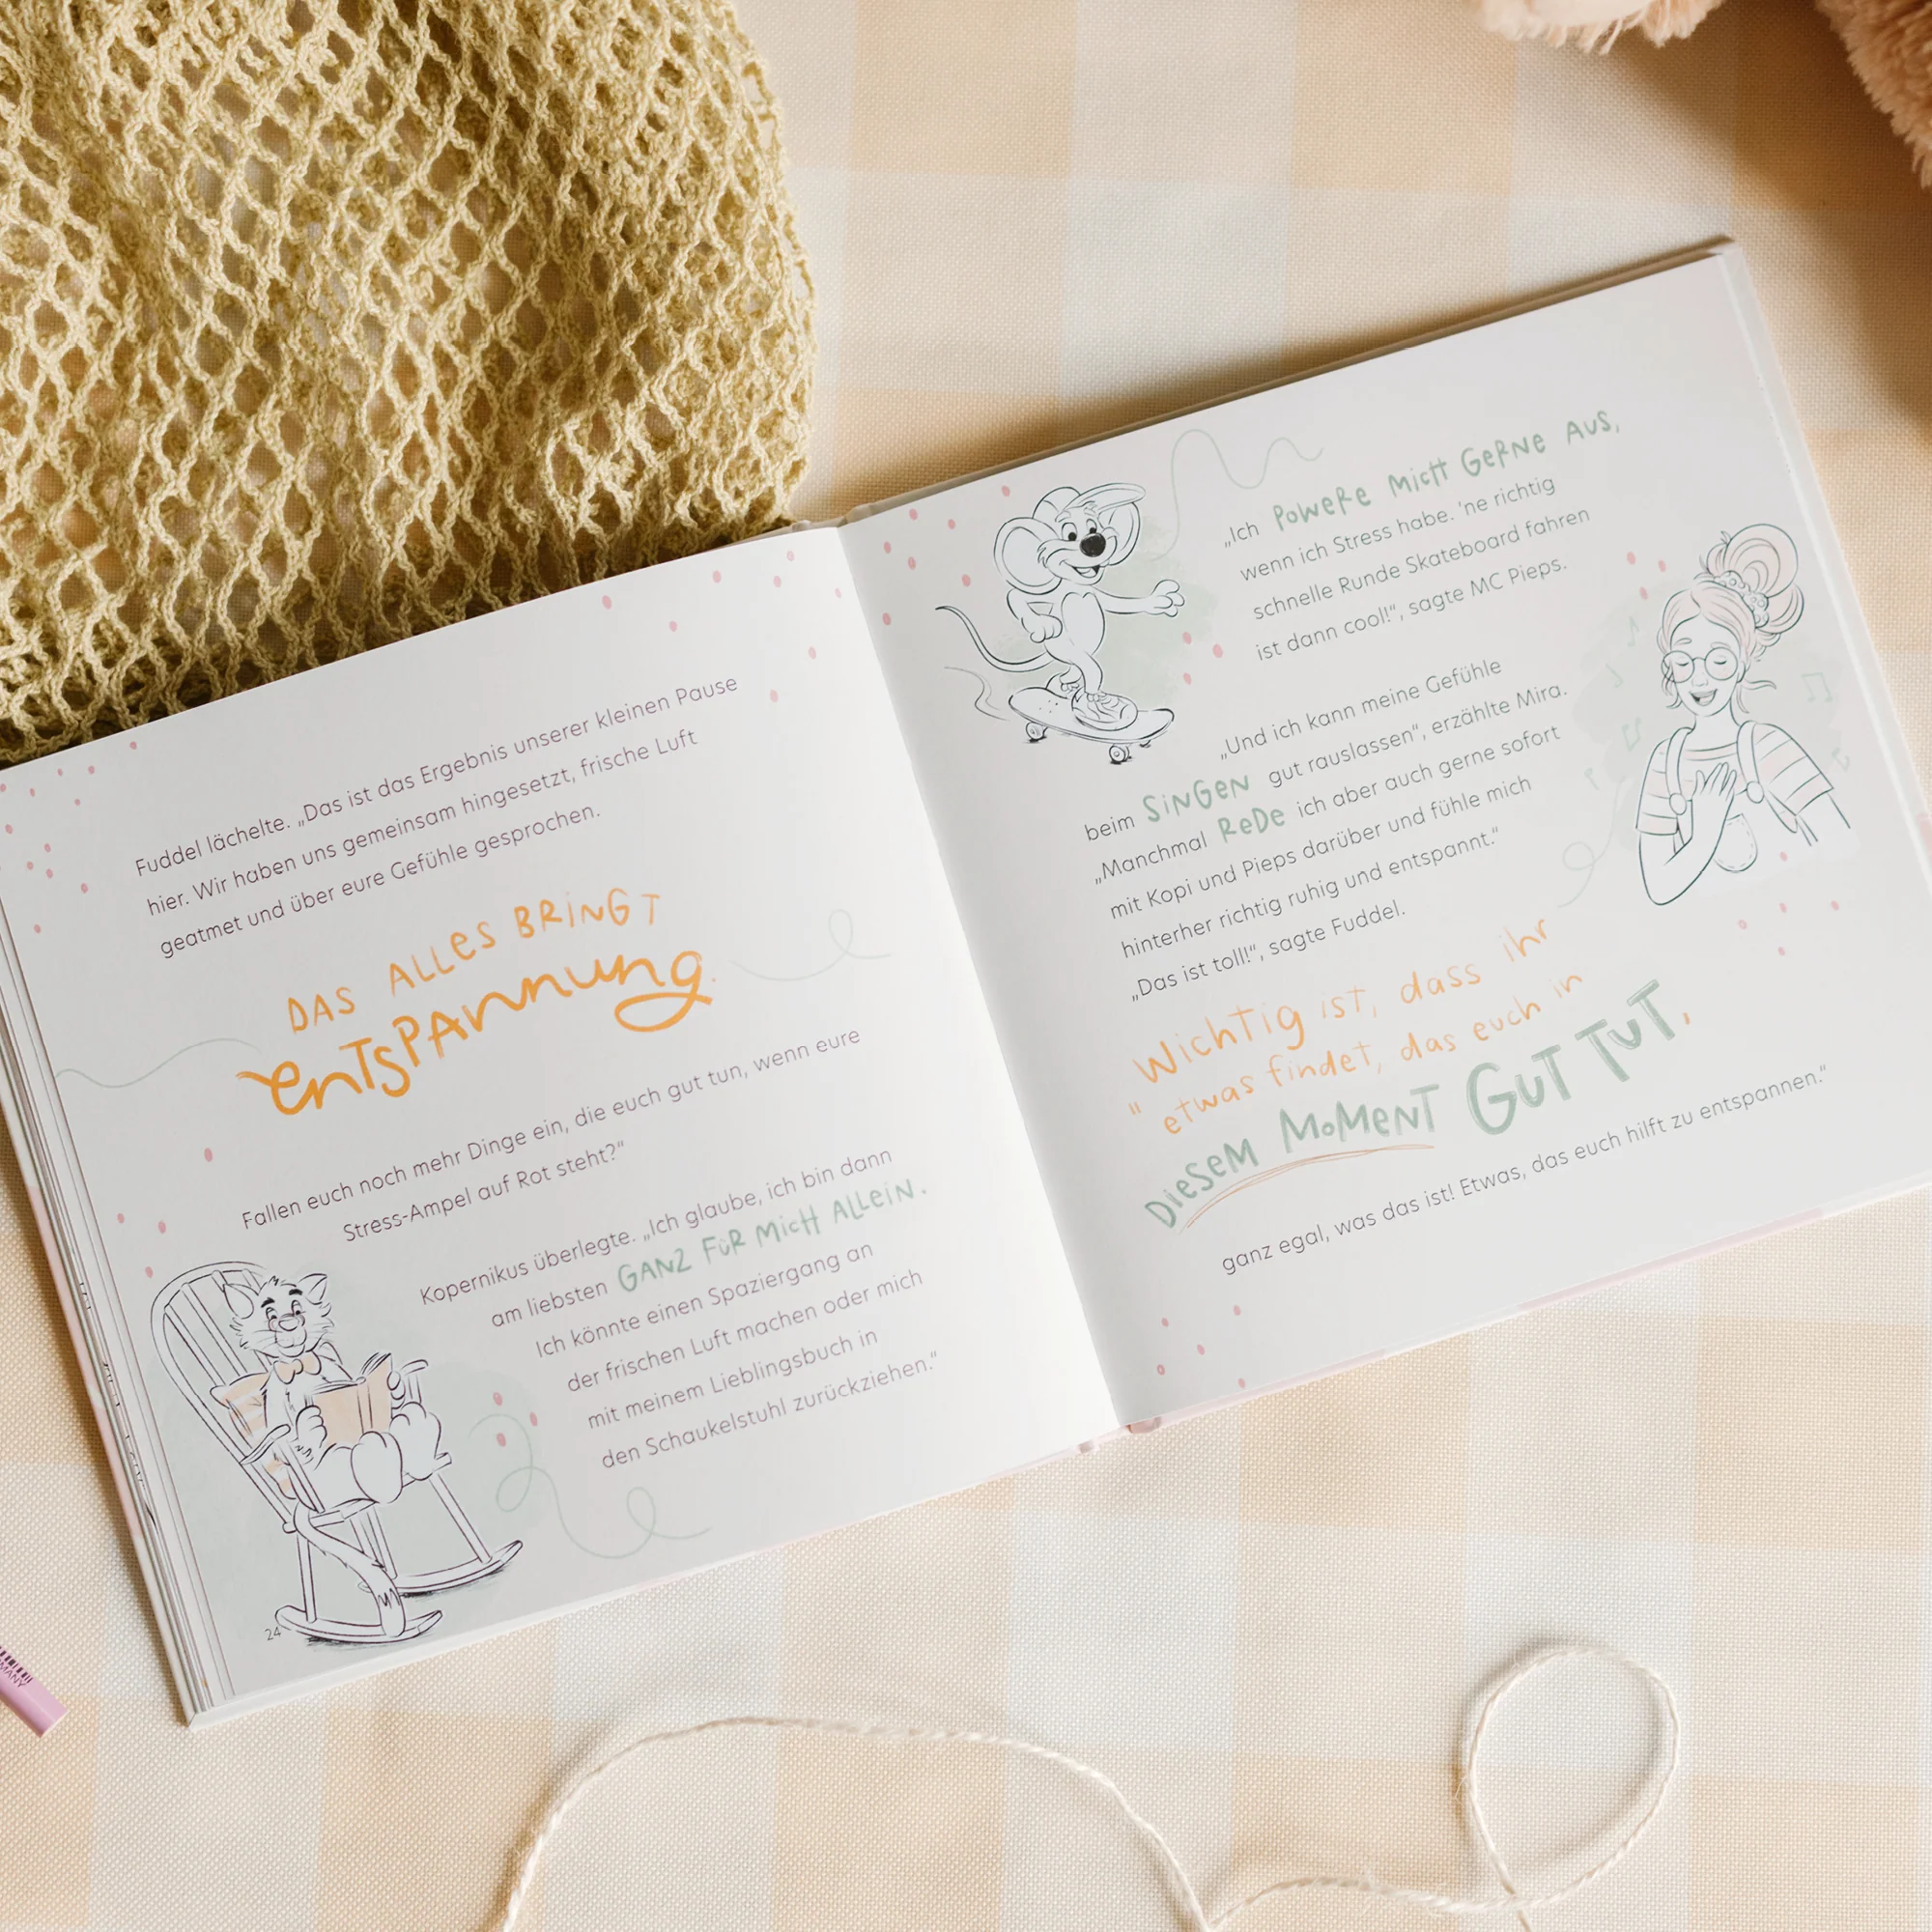 Fuddel lächelte. „Das ist das Ergebnis unserer kleinen Pause
hier. Wir haben uns gemeinsam hingesetzt, frische Luft
geatmet und über eure Gefühle gesprochen.
DAS ALLES BRINGT
ENTSPANNUNG.
Fallen euch noch mehr Dinge ein, die euch gut tun, wenn eure
Stress-Ampel auf Rot steht?“
Kopernikus überlegte. „Ich glaube, ich bin dann
am liebsten GANZ FÜR MICH ALLEIN.
Ich könnte einen Spaziergang an
der frischen Luft machen oder mich
mit meinem Lieblingsbuch in
den Schaukelstuhl zurückziehen.“
24
„Ich POWERE MICH GERNE AUS,
wenn ich Stress habe. 'ne richtig
schnelle Runde Skateboard fahren
ist dann cool!“, sagte MC Pieps.
„Und ich kann meine Gefühle
beim SINGEN gut rauslassen“, erzählte Mira.
„Manchmal REDE ich aber auch gerne sofort
mit Kopi und Pieps darüber und fühle mich
hinterher richtig ruhig und entspannt.“
„Das ist toll!“, sagte Fuddel.
Wichtig ist, dass ihr
" etwas findet, das euch in
DIESEM MOMENT GUT TUT,
ganz egal, was das ist! Etwas, das euch hilft zu entspannen.“